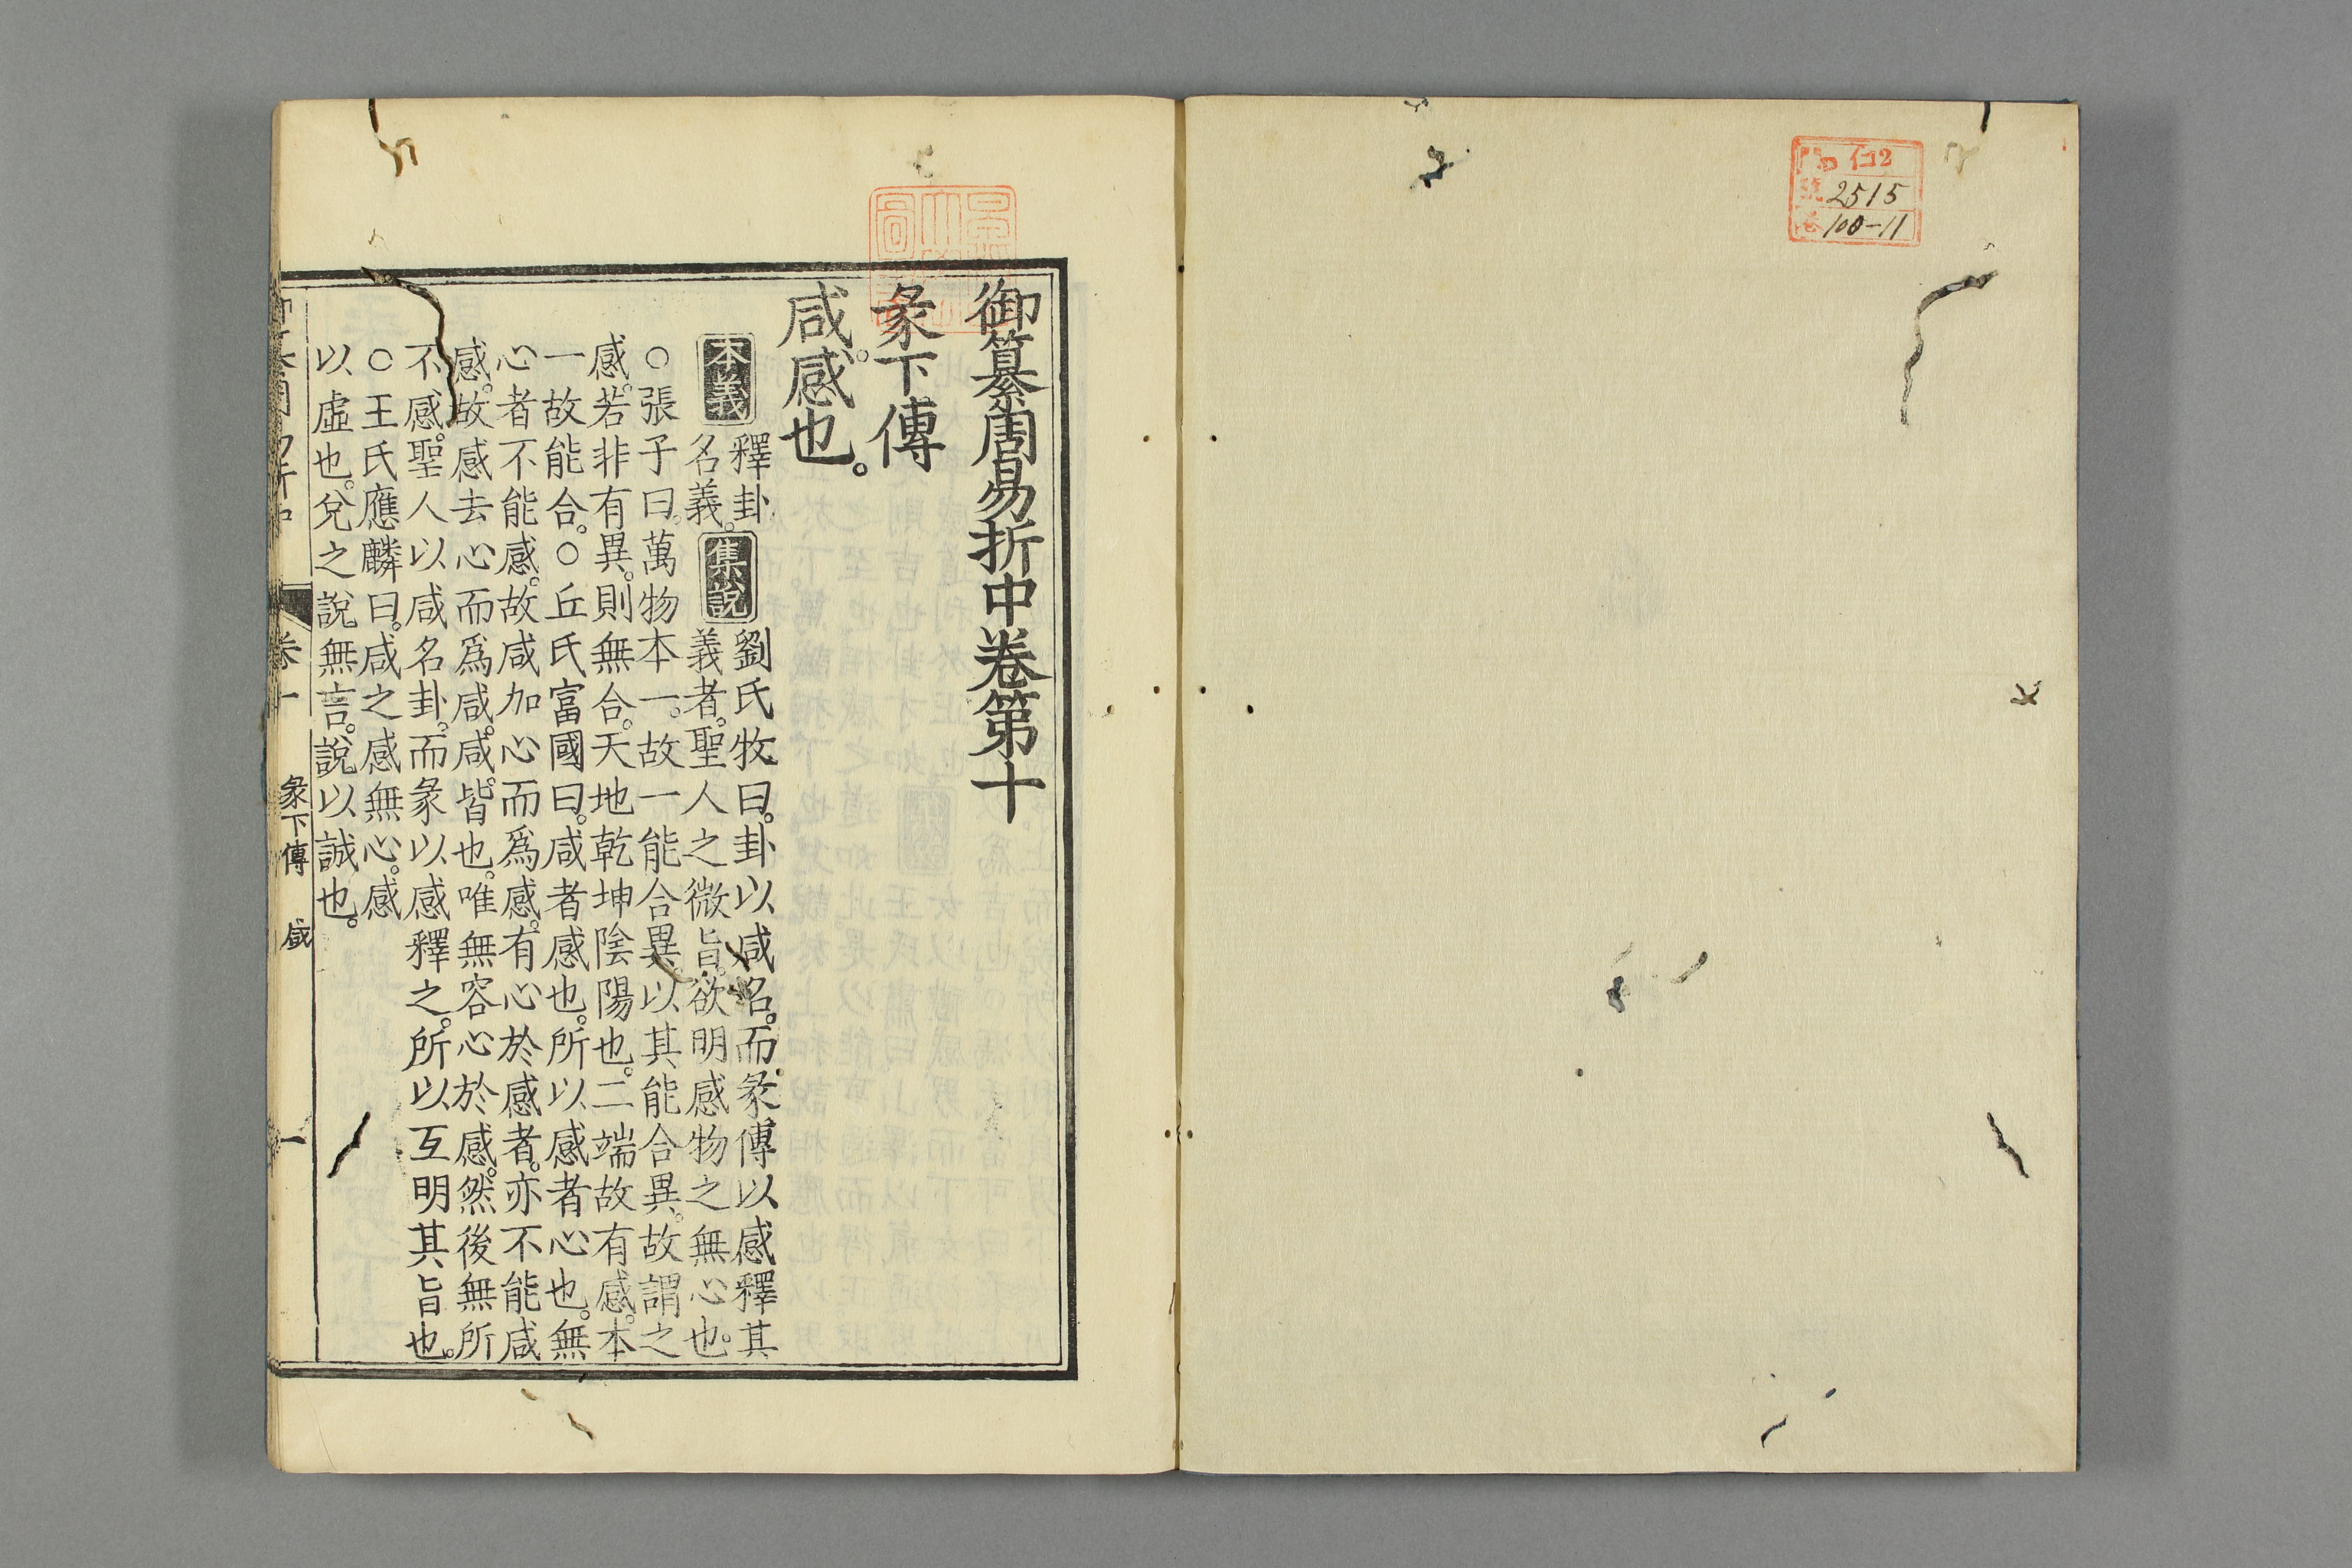 仁2
2515
100-11
御纂周易折中卷第十
彖下傳
咸。感也。
本義
釋卦
名義。
集說
劉氏牧曰。卦以咸名。而彖傳以感釋其
義者。聖人之微旨。欲明感物之無心也。
○張子曰。萬物本一。故一能合異。以其能合異。故謂之
感。若非有異。則無合。天地乾坤陰陽也。二端故有感。本
一故能合。○丘氏富國曰。咸者感也。所以感者心也。無
心者不能感。故咸加心而爲感。有心於感者。亦不能咸
感。故感去心而爲咸。咸。皆也。唯無容心於感。然後無所
不感。聖人以咸名卦。而彖以感釋之。所以互明其旨也。
○王氏應麟曰。咸之感無心。感
以虛也。兌之說無言。說以誠也。
卷十
彖下傳
咸
一